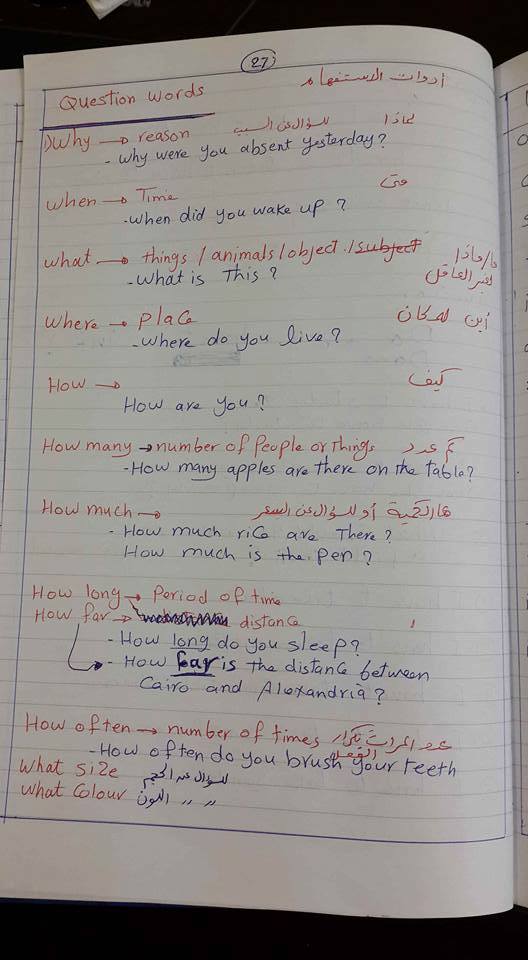 27
Question words أدوات الاستفهام
1) Why → reason للسؤال عن السبب لماذا
- Why were you absent yesterday?
When → Time متى
- When did you wake up ?
What → things / animals / object / subject ما/ماذا
- What is This ? لغير العاقل
Where → Place أين للمكان
- Where do you live ?
How → كيف
How are you ?
How many → number of People or things كم عدد
- How many apples are there on the table?
How much → أو للسؤال عن السعر
- How much rice are There ?
How much is the pen ?
How long → Period of time
How far → distance
- How long do you sleep?
- How far is the distance between
Cairo and Alexandria ?
How often → number of times عدد المرات تكرار الفعل
- How often do you brush your teeth
What Size للسؤال عن الحجم
What Colour " " اللون